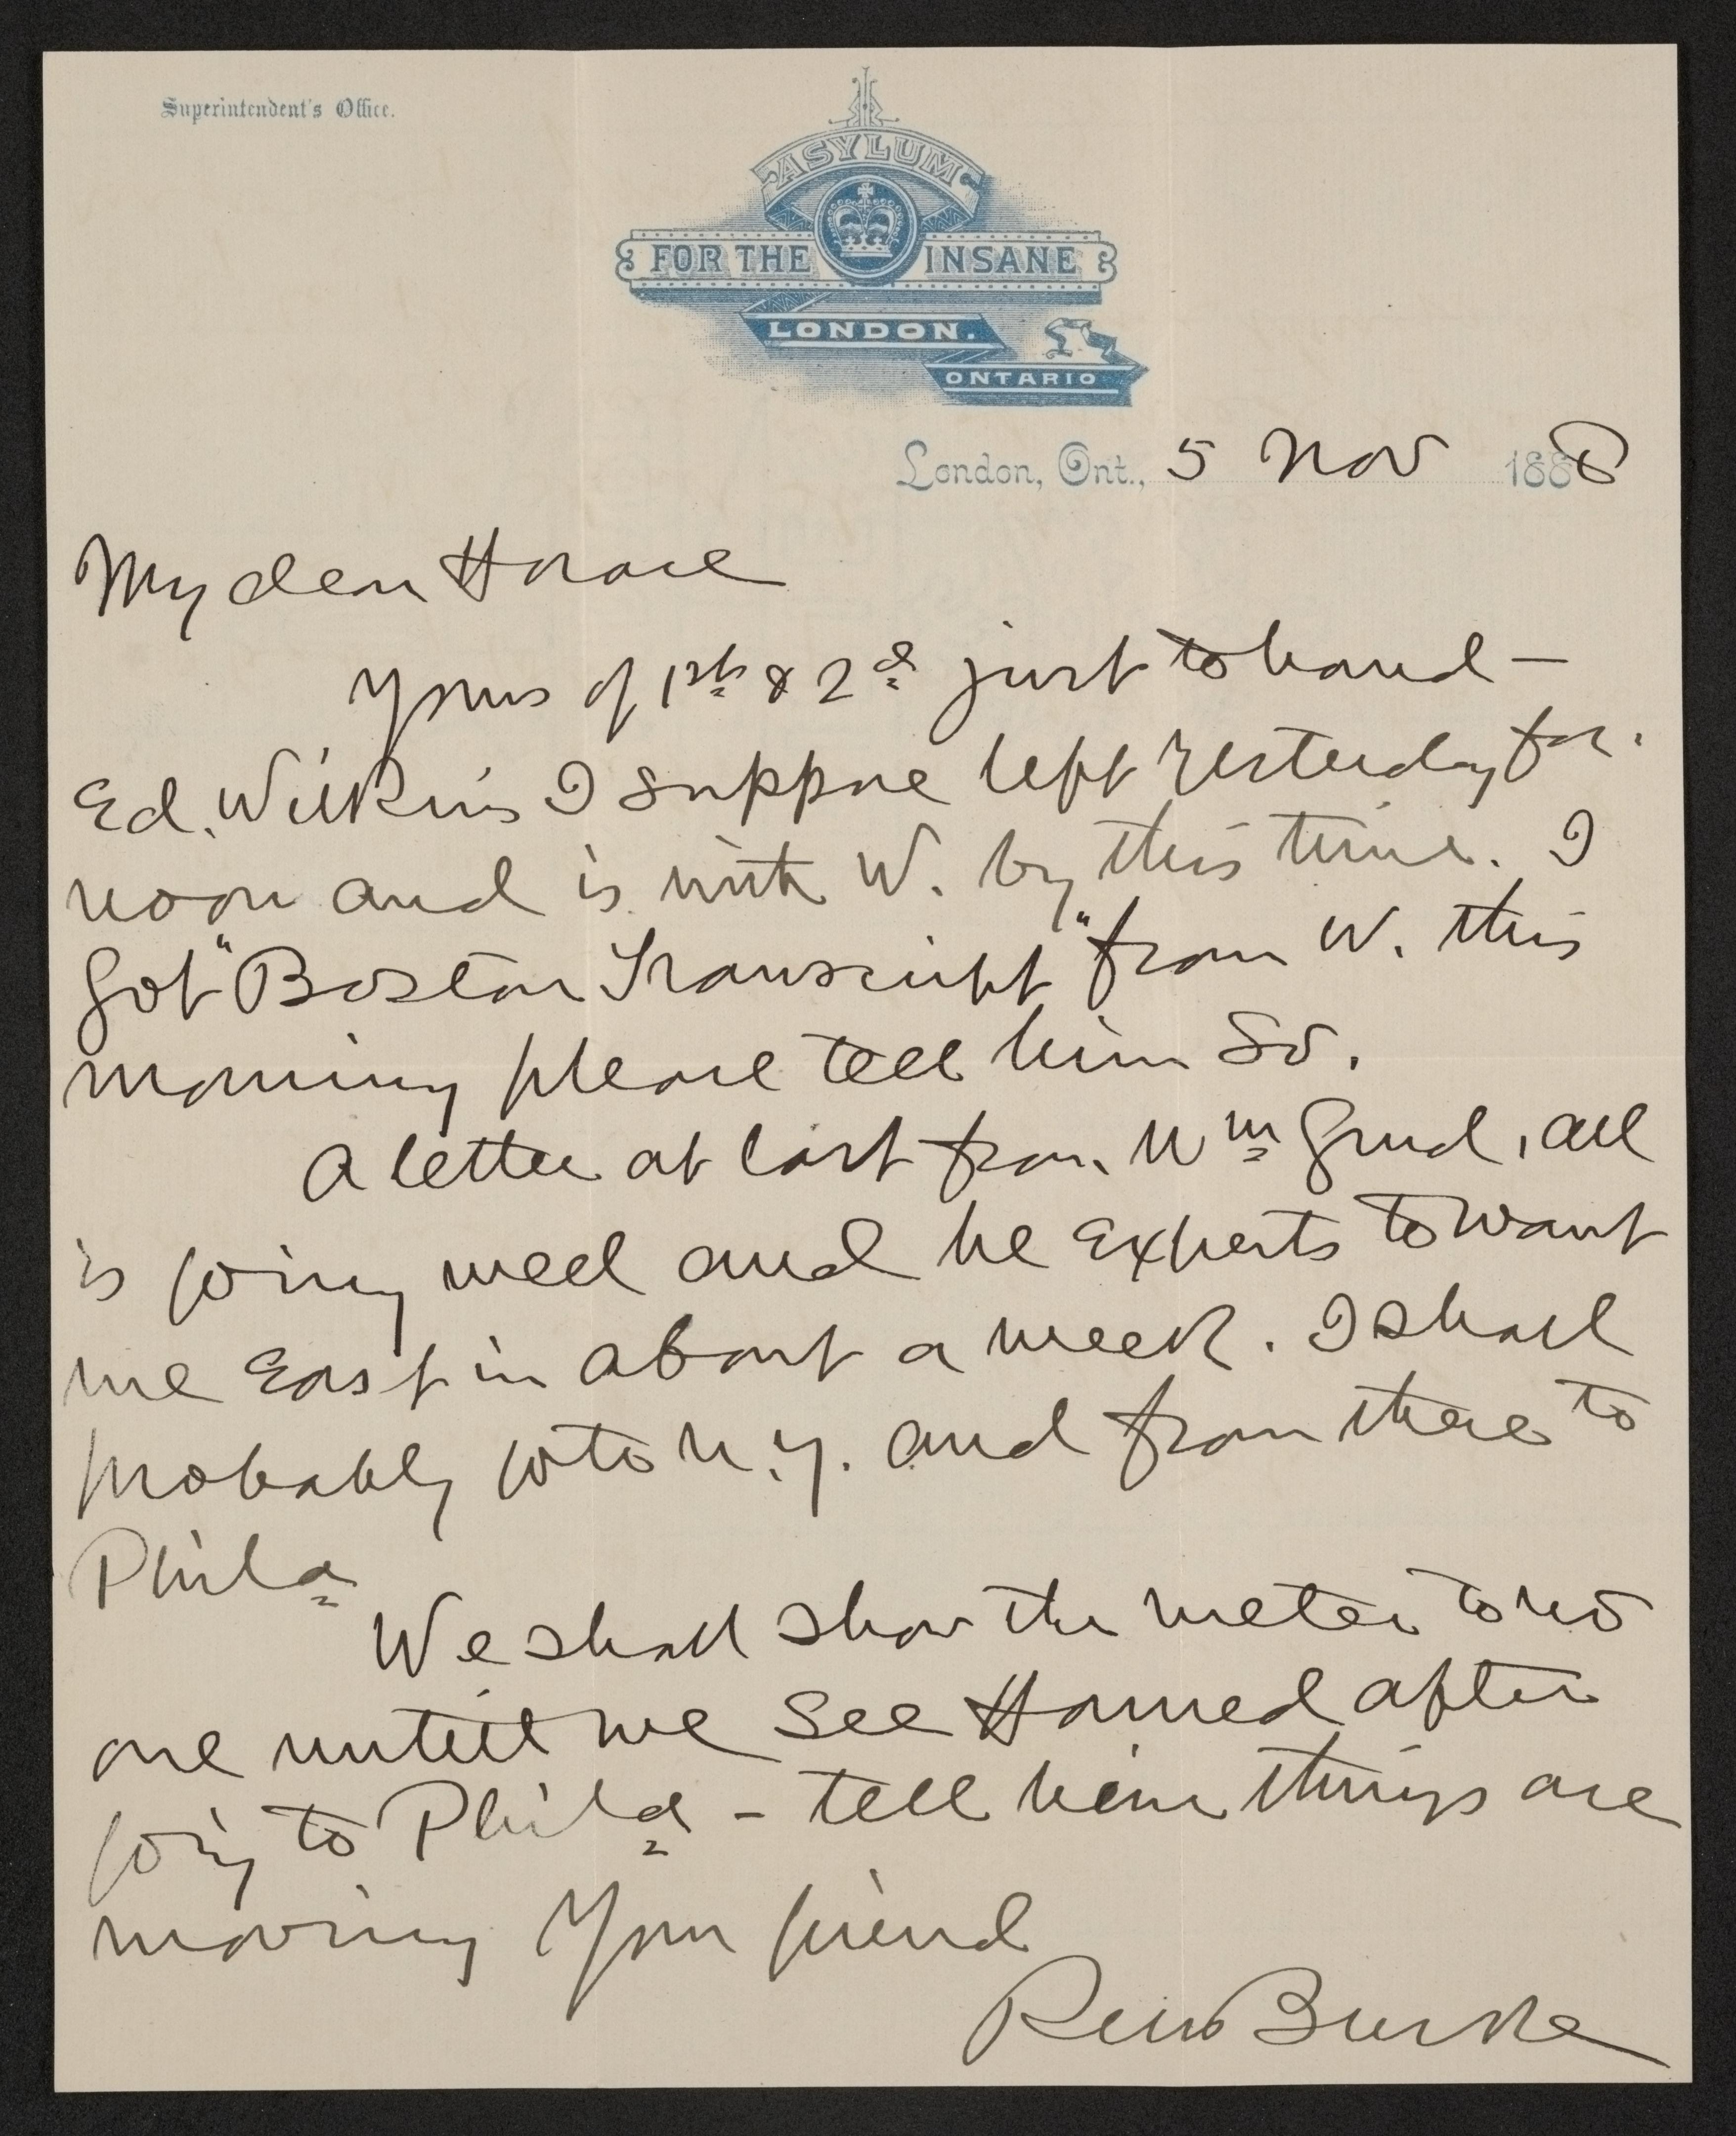 Superintendent's Office.
ASYLUM
FOR THE INSANE
LONDON.
ONTARIO
London, Ont., 5 Nov 1888
My dear Horace
Yours of 1st & 2d just to hand —
Ed. Wilkins I suppose left yesterday for.
noon and is with W. by this time. I
got "Boston Transcript" from W. this
morning please tell him so.
A letter at last from Wm Gurd, all
is going well and he expects to want
me East in about a week. I shall
probably go to N.Y. and from there to
Phila
We shall show the meter to no
one untill we see Harned after
going to Phila – tell him things are
moving Your friend
R M Bucke